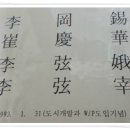 李 岡 錫
崔 慶 華
李 弦 娥
李 弦 幸
992. 1. 31(도시개발과 W/P도입기념)